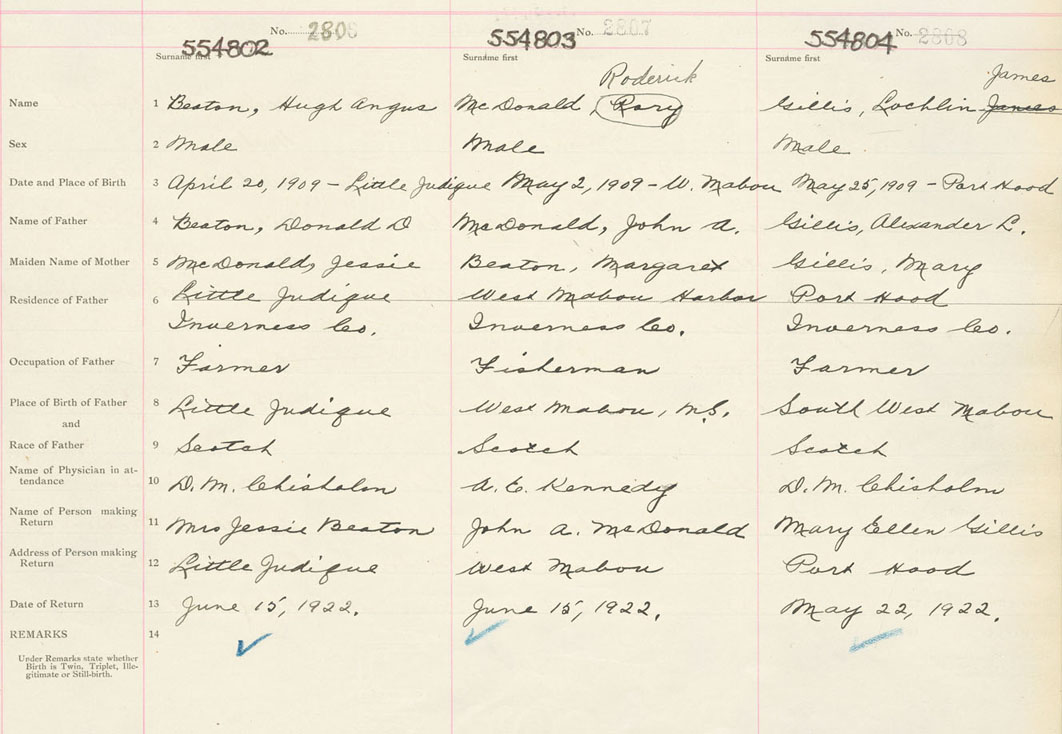 No. 2806 No. 2807 No. 2808
554802 554803 554804
Surname first Surname first Surname first
Roderick James
Name 1 Beaton, Hugh Angus McDonald Rory Gillis, Lochlin James
Sex 2 Male Male Male
Date and Place of Birth 3 April 20, 1909 - Little Judique May 2, 1909 - W. Mabou May 25, 1909 - Port Hood
Name of Father 4 Beaton, Donald D McDonald, John A. Gillis, Alexander L.
Maiden Name of Mother 5 McDonald, Jessie Beaton, Margaret Gillis, Mary
Residence of Father 6 Little Judique West Mabou Harbor Port Hood
Inverness Co. Inverness Co. Inverness Co.
Occupation of Father 7 Farmer Fisherman Farmer
Place of Birth of Father 8 Little Judique West Mabou, N.S. South West Mabou
and
Race of Father 9 Scotch Scotch Scotch
Name of Physician in at-
tendance 10 D. M. Chisholm A. E. Kennedy D. M. Chisholm
Name of Person making
Return 11 Mrs Jessie Beaton John A. McDonald Mary Ellen Gillis
Address of Person making
Return 12 Little Judique West Mabou Port Hood
Date of Return 13 June 15, 1922. June 15, 1922. May 22, 1922.
REMARKS 14
Under Remarks state whether
Birth is Twin, Triplet, Ille-
gitimate or Still-birth.